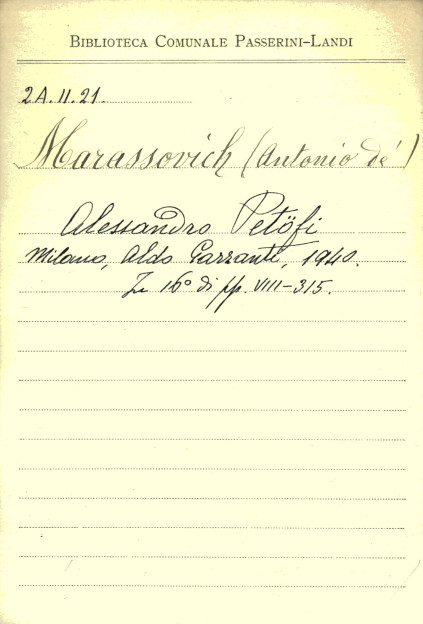 BIBLIOTECA COMUNALE PASSERINI-LANDI
2A.II.21.
Marassovich (Antonio de')
Alessandro Petöfi
Milano, Aldo Garzanti, 1940.
In 16° di pp. VIII-315.